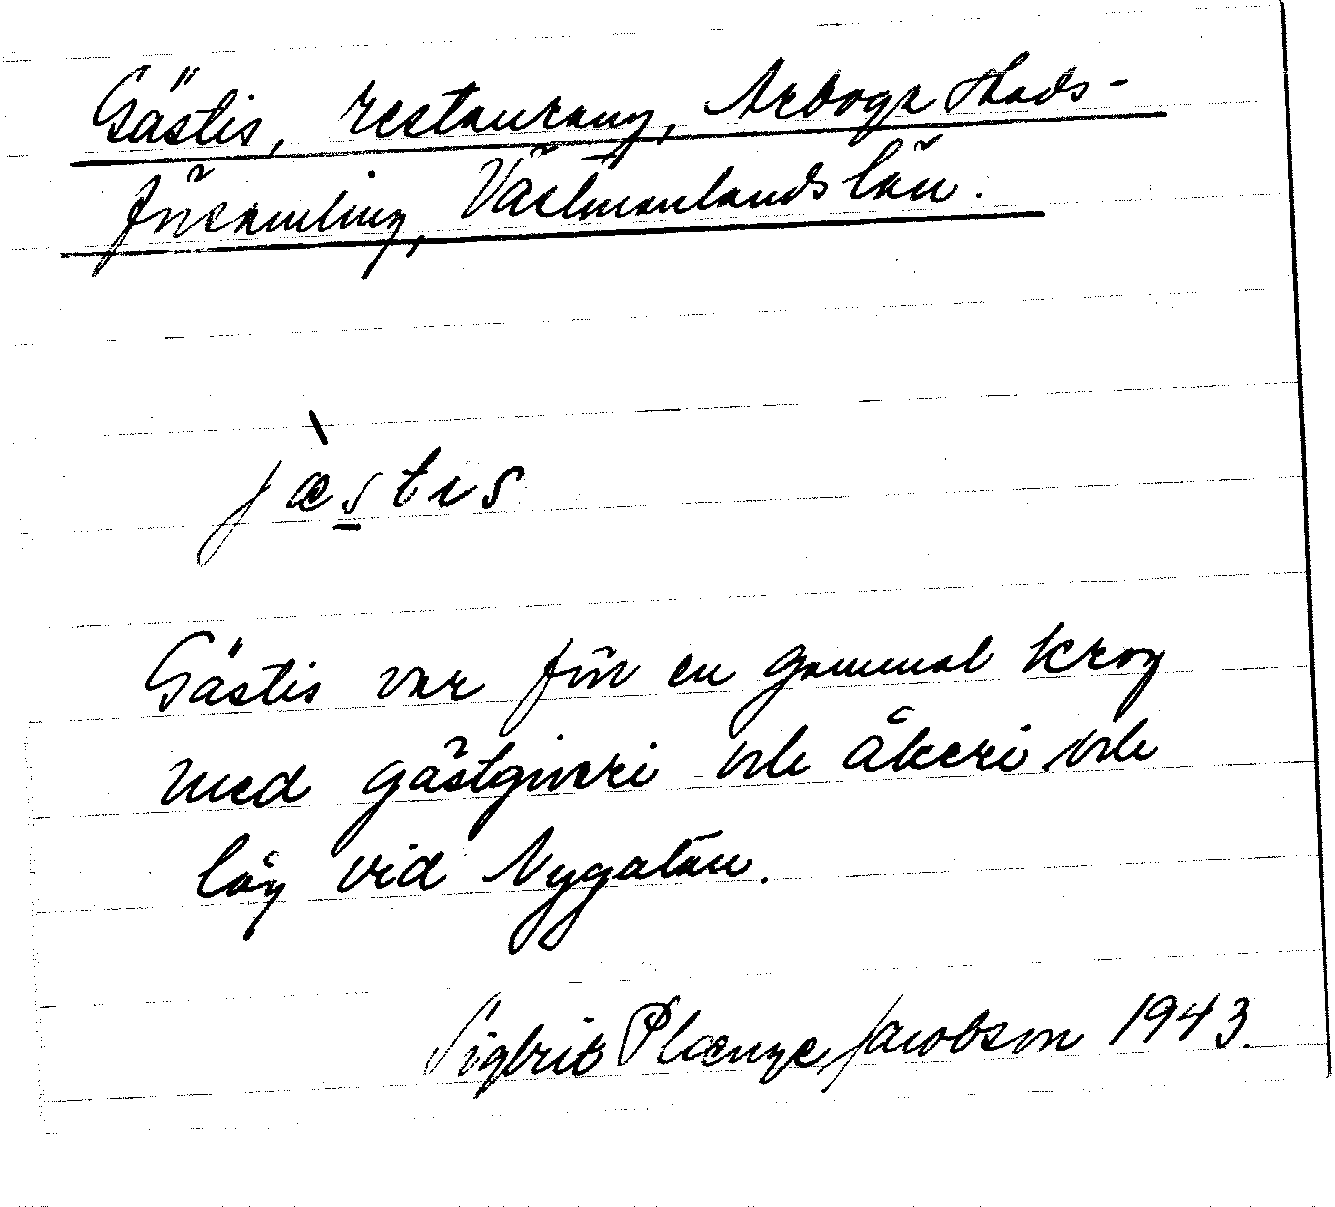 Gästis, restaurang, Arboga Stads-
församling, Västmanlands län.
jæ̀stɩs
Gästis var förr en gammal krog
med gästgiveri och åkeri och
låg vid Nygatan.
Sigbrit Plænge Jacobson 1943.